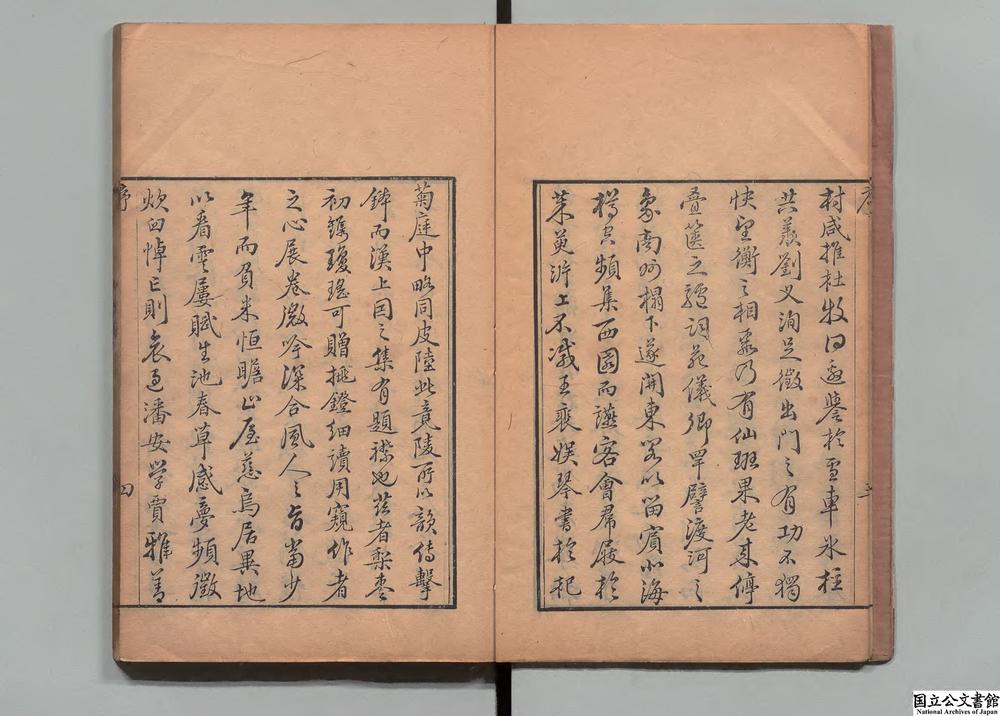 村咸推杜牧同邀譽於雪車氷柱
共羨劉叉洵足徵出門之有功不獨
快望衡之相慕乃有仙班果老來停
疊篋之 詞苑儀卿罕譬渡河之
象南州榻下遂開東閣以留賓北海
樽空頻集西園而讌客會羣屐於
茱萸沜上不減王裴娛琴書於杞
菊庭中略同皮陸此竟陵所以韻傳擊
鉢而漢上因之集有題襟也茲者梨棗
初鐫瓊瑤可贈挑鐙細讀用窺作者
之心展卷微吟深合風人之旨當少
年而負米恒瞻山屋慈烏居異地
以看雲屢賦生池春草感夢頻徵
炊臼悼亡則哀過潘安學賈雅善
序
四
国立公文書館
National Archives of Japan